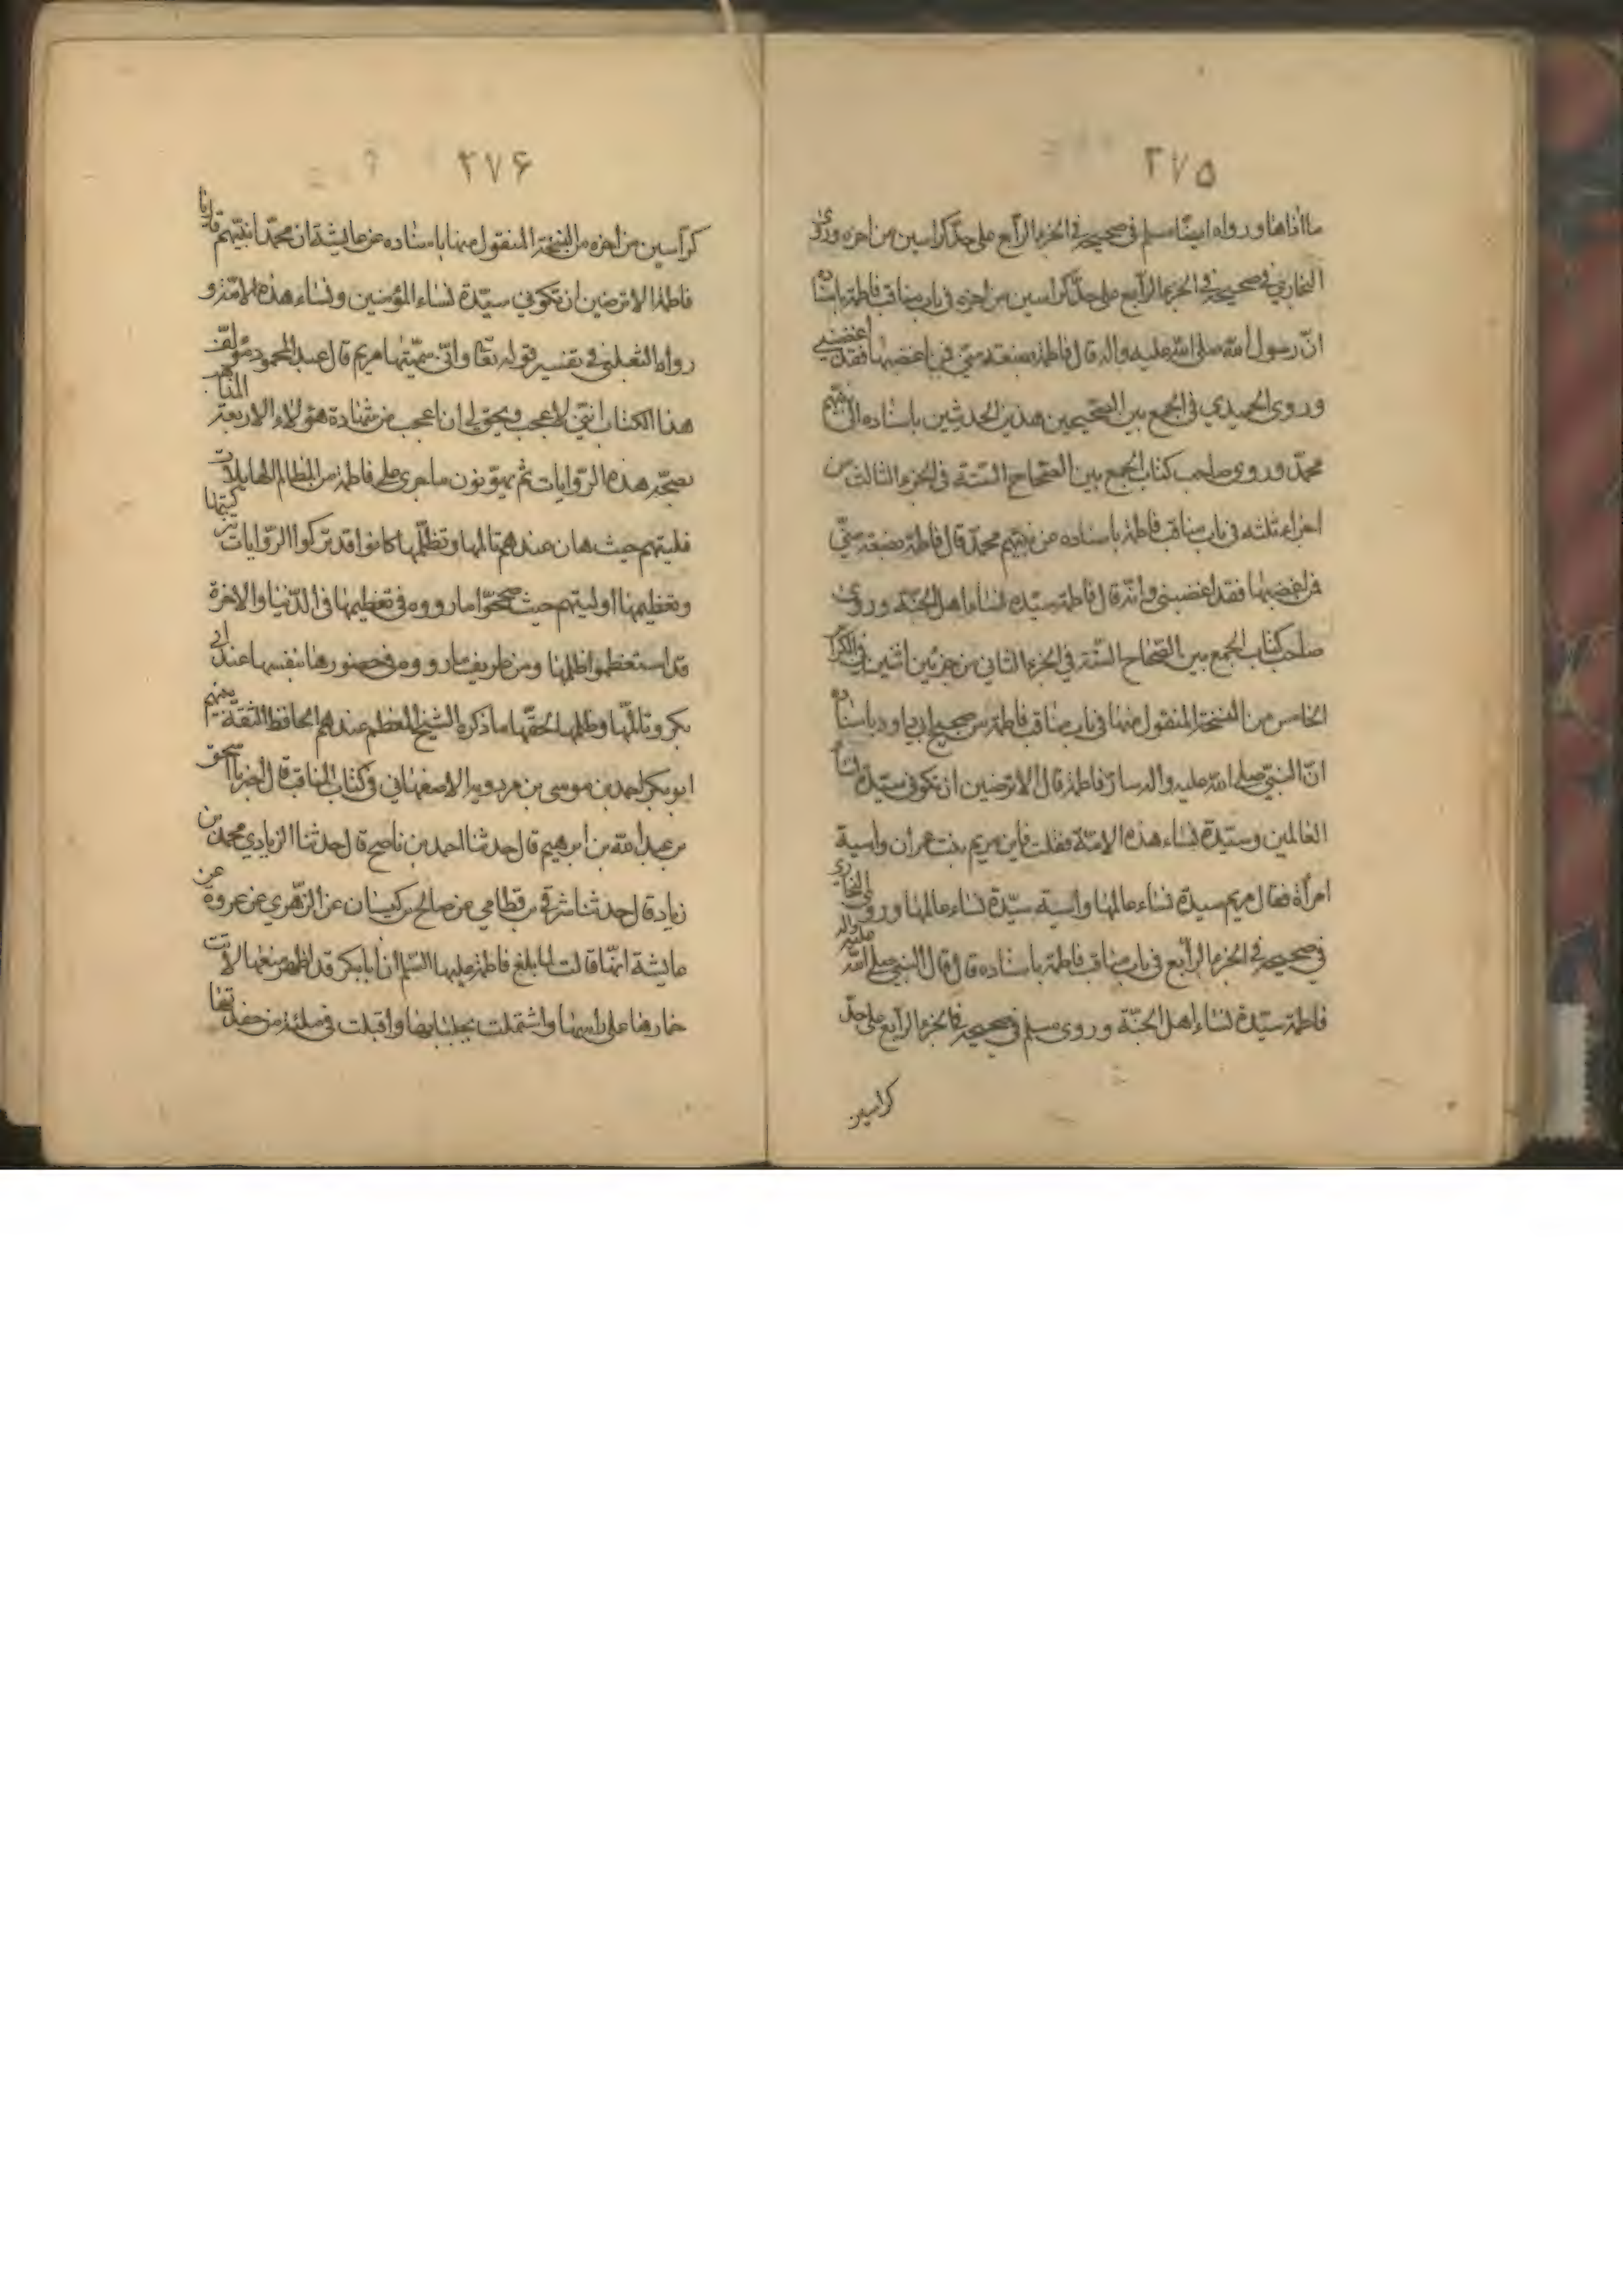 ٢٧۵
ما اذاها ورواه ايضا مسلم فى صحيحه فى الجزء الرّابع على حدّ كراسين من اخره وروى
البخاري فى صحيحه فى الجزء الرّابع على حدّ كراسين من اخره فى باب مناقب فاطمة باسناده
انّ رسول الله صلى الله عليه واله قال فاطمة بضعة منّي فمن اغضبها فقد اغضبني
وروى الحميدي فى الجمع بين الصّحيحين هذين الحديثين باسناده الى نبيّهم
محمّد وروى صاحب كتاب الجمع بين الصّحاح السّتة فى الجزء الثالث من
اجزاء ثلثة فى باب مناقب فاطمة باسناده عن نبيّهم محمّد قال فاطمة بضعة منّي
فمن اغضبها فقد اغضبني وانّه قال فاطمة سيّدة نساء اهل الجنّة وروى
صاحب كتاب الجمع بين الصّحاح السّتة فى الجزء الثانى من جزئين اثنين فى الكرّاس
الخامس من النسخة المنقول منها فى باب مناقب فاطمة من صحيح ابى داود باسناده
انّ النبيّ صلى الله عليه واله سارّ فاطمة قال الا ترضين ان تكونى سيّدة نساء
العالمين وسيّدة نساء هذه الامّة فقلت فاين مريم بنت عمران واسية
امرأة فقال مريم سيدة نساء عالمها واسية سيّدة نساء عالمها وروى البخارى
فى صحيحه فى الجزء الرّابع فى باب مناقب فاطمة باسناده قال قال النبي صلى الله عليه واله
فاطمة سيّدة نساء اهل الجنّة وروى مسلم فى صحيحه فى الجزء الرّابع على حدّ
كراسين
٢٧۶
كرّاسين من اخره من النسخة المنقول منها باسناده عن عايشة ان محمّدا نبيّهم قال يا
فاطمة الا ترضين ان تكوني سيّدة نساء المؤمنين ونساء هذه الامّة و
رواه الثعلبي فى تفسير قوله تعا وانّي سمّيتها مريم قال عبد المحمود مؤلّف
هذا الكتاب انّني لاعجب ويحق لي ان اعجب من شهادة هؤلاء الاربعة المذاهب
بصحّة هذه الرّوايات ثم يهوّنون ما جرى على فاطمة من المظالم الهايلات
فليتهم حيث هان عندهم تالمها وتظلّمها كانوا قد تركوا الرّوايات بتزكيتها
وتعظيمها او ليتهم حيث صحّحوا ما رووه فى تعظيمها فى الدّنيا والاخرة
قد استعظموا ظلمها ومن طريف ما رووه فى حضورها بنفسها عند ابي
بكر وتالّمها وطلبها لحقّها ما ذكره الشيخ المعظم عندهم الحافظ الثقة بينهم
ابو بكر احمد بن موسى بن مردويه الاصفهاني فى كتاب المناقب قال اخبرنا اسحق
بن عبد الله بن ابرهيم قال حدثنا احمد بن ناصح قال حدثنا الزيادي محمّد بن
زياد قال حدثنا شرقي بن قطامي عن صالح بن كيسان عن الزّهري عن عروة عن
عايشة انّها قالت لما بلغ فاطمة عليها السّلم ان أبا بكر قد اظهر منعها لاثت
خمارها على راسها واشتملت بجلبابها واقبلت فى ملمة من حفدتها